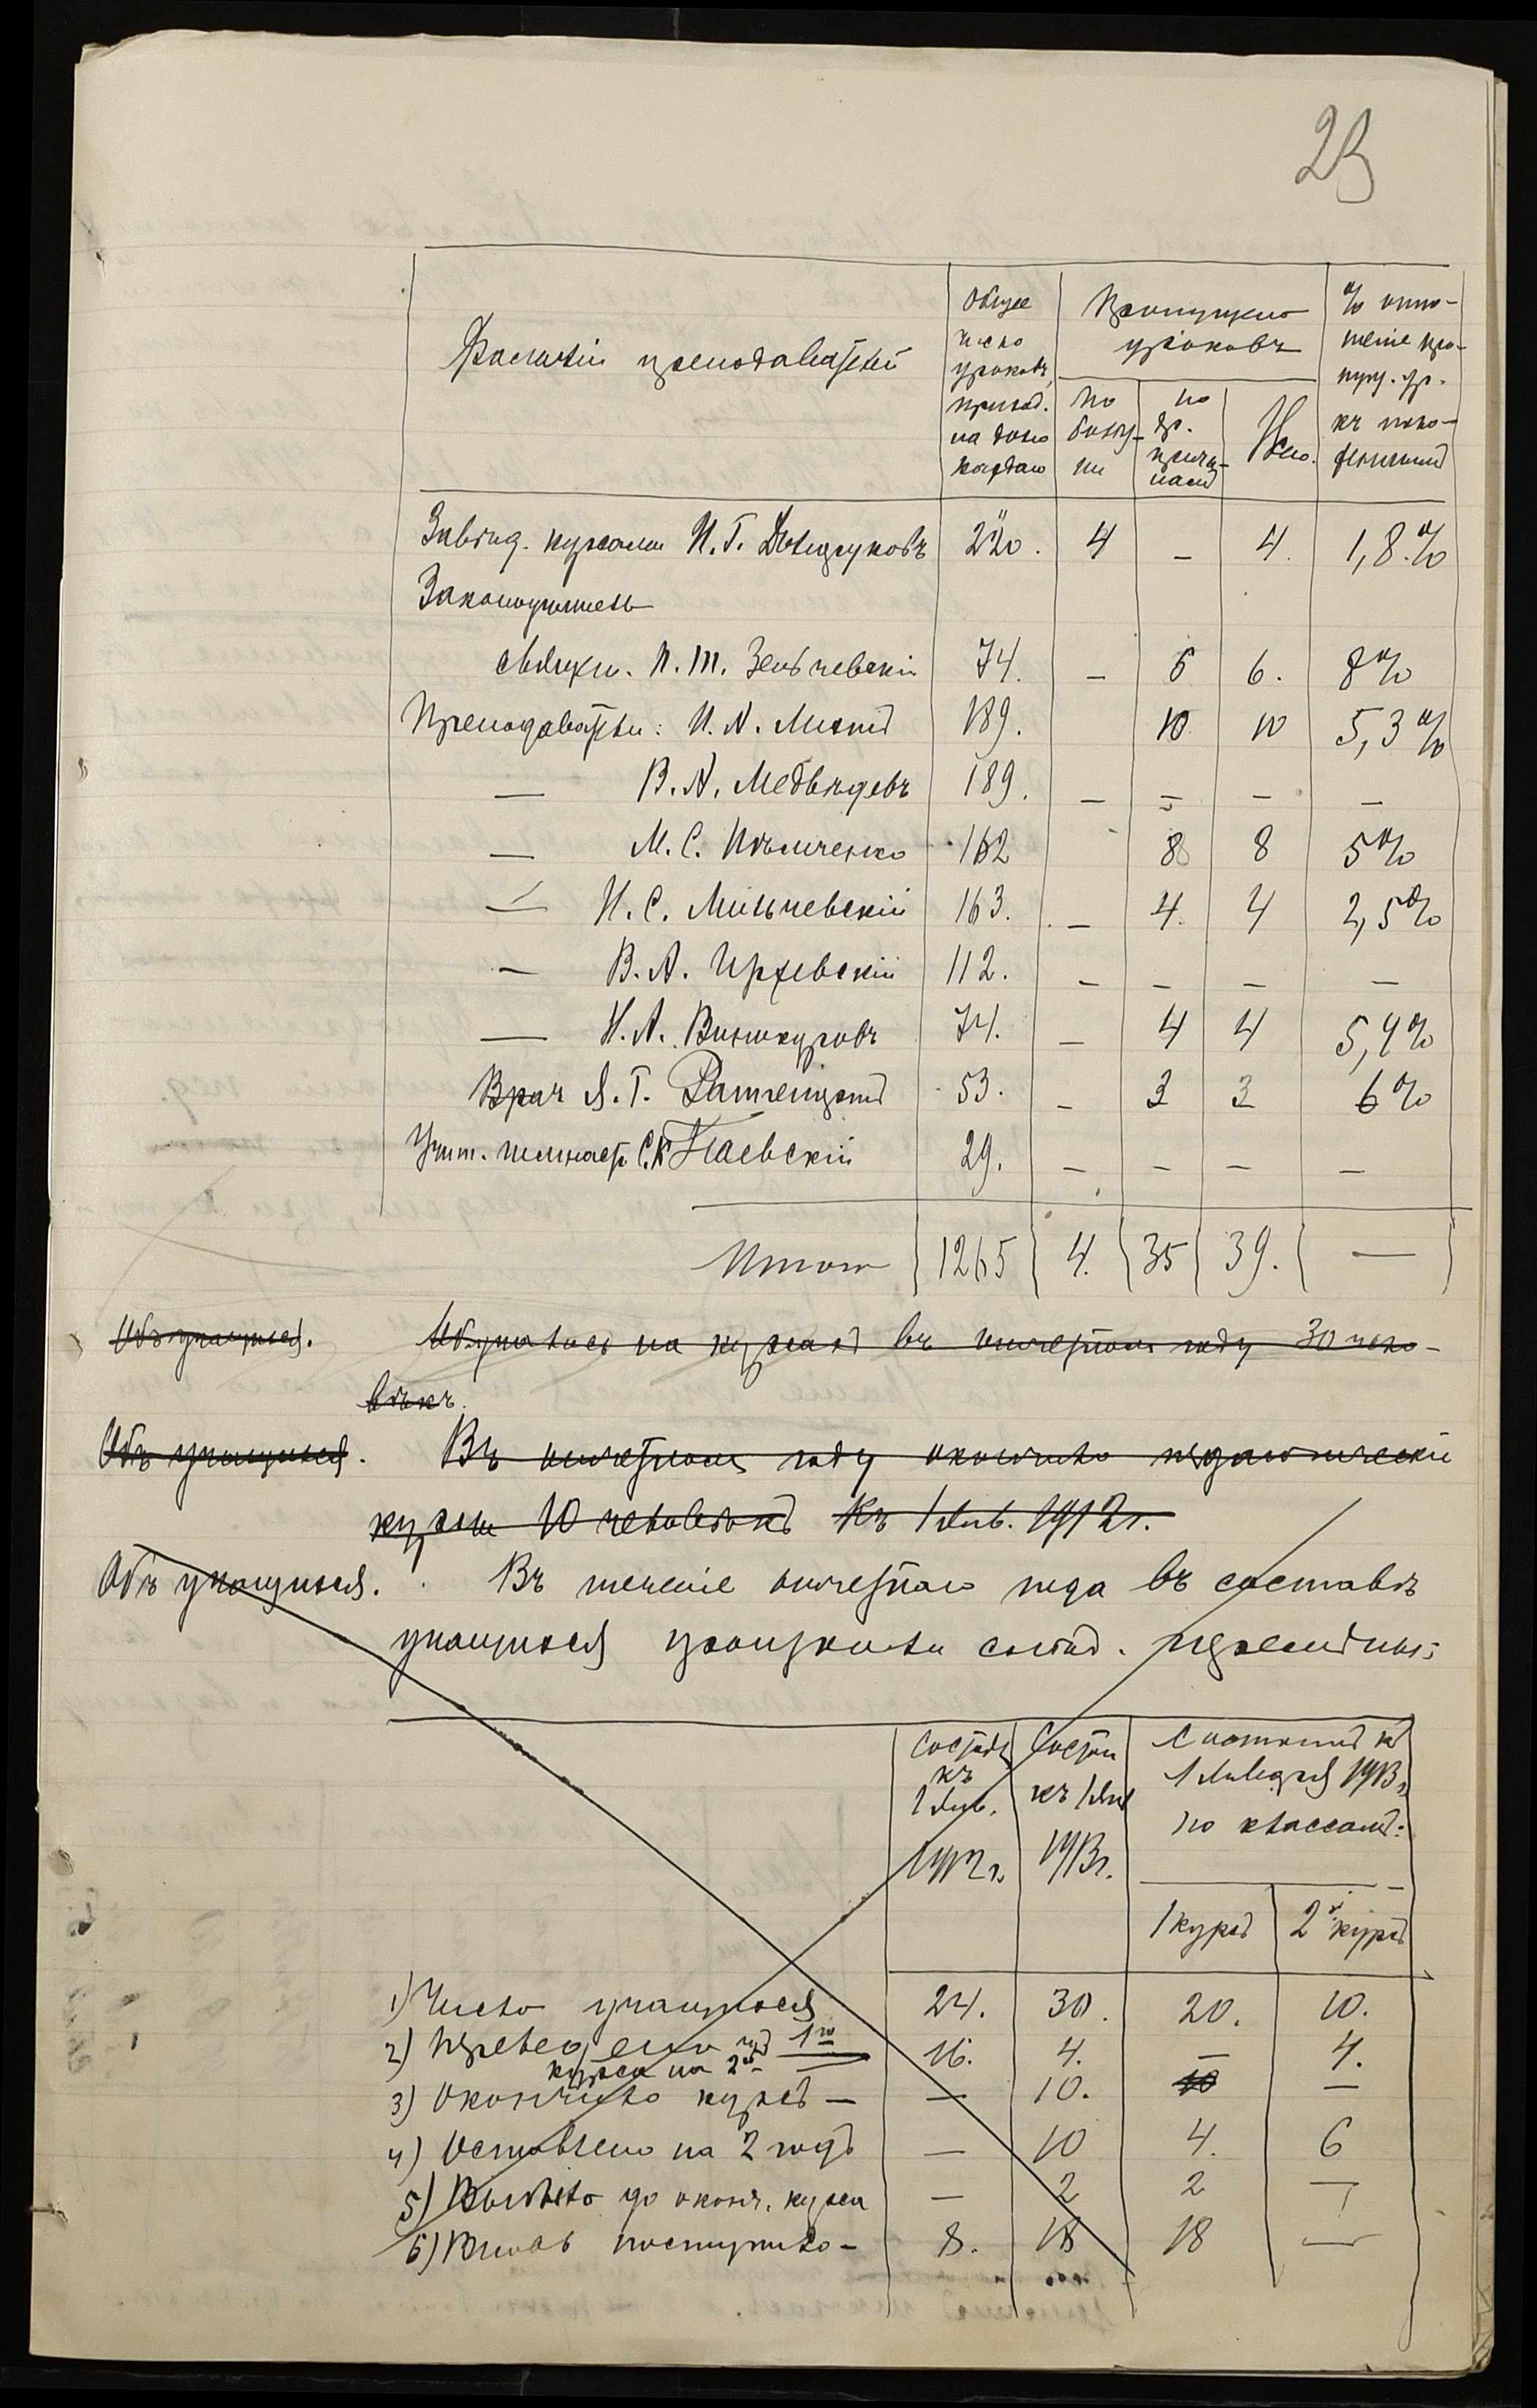 23
Фамилии преподавателей
Общее число уроковъ, приход. на долю каждаго
Пропущено уроковъ
по болѣзни
по др. причинамъ
Всего.
% отношеніе пропущ. ур. къ положеннымъ
Завѣд. курсами И. Г. 220. 4 – 4. 1,8%
Законоучитель
священ. П. Т. 74. – 6 6. 8%
Преподаватели: И. Н. 189. 10 10 5,3%
— В. Н. Медвѣдевъ 189. – – – –
— М. С. 162 8 8 5%
— И. С. Мильчевскій 163. – 4. 4 2,5%
— В. А. 112. – – – –
— Н. А. Винокуровъ 74. – 4 4 5,4%
Врач Я. Г. 53. – 3 3 6%
Учит. гимнаст. С. 29. – – – –
Итого 1265 4. 35 39. —
Объ учащихся. Обучалось на курсахъ въ отчетномъ году 30 чело-
вѣкъ.
Объ учащихся. Въ отчетномъ году окончило педагогическіе
курсы 10 человѣкъ къ 1 Янв. 1912 г.
Объ учащихся. Въ теченіе отчетнаго года въ составѣ
учащихся произошли слѣд. перемѣны:
Состояло къ 1 Янв. 1912 г.
Состоял къ 1 Янв 1913 г.
Состоитъ къ 1 Января 1913 г. по классамъ:
1 курсъ
2й курсъ
1) Число учащихся 24. 30. 20. 10.
2) Переведено изъ 1го 16. 4. – 4.
курса на 2й –
3) Окончило курсъ — — 10. 10 —
4) Оставлено на 2 годъ — 10 4. 6
5) Выбыло до оконч. курса — 2 2 —
6) Вновь поступило – 8. 18 18 —